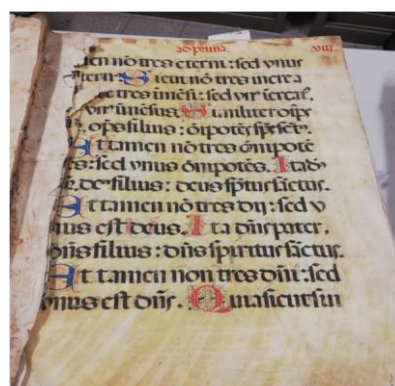 ad prima. viii.
men nō tres eterni: sed vnus
eternꝰ. Sicut nō tres increa
te tres īmēsi: sed vnꝰ
vnꝰ īmēsus. Similiter oīps
oīps filius: oīpotēs sp̄s sct̄.
Et tamen nō tres oīpotē
s: sed vnus oīpotēs. Ita dꝰ
deꝰ filius: deus sp̄tus sāctus.
Et tamen nō tres dij: sed v
nus est deus. Ita dn̄s pater.
dn̄s filius: dn̄s spiritus sāctus.
Et tamen non tres dn̄i: sed
vnus est dn̄s. Quia sicut sin